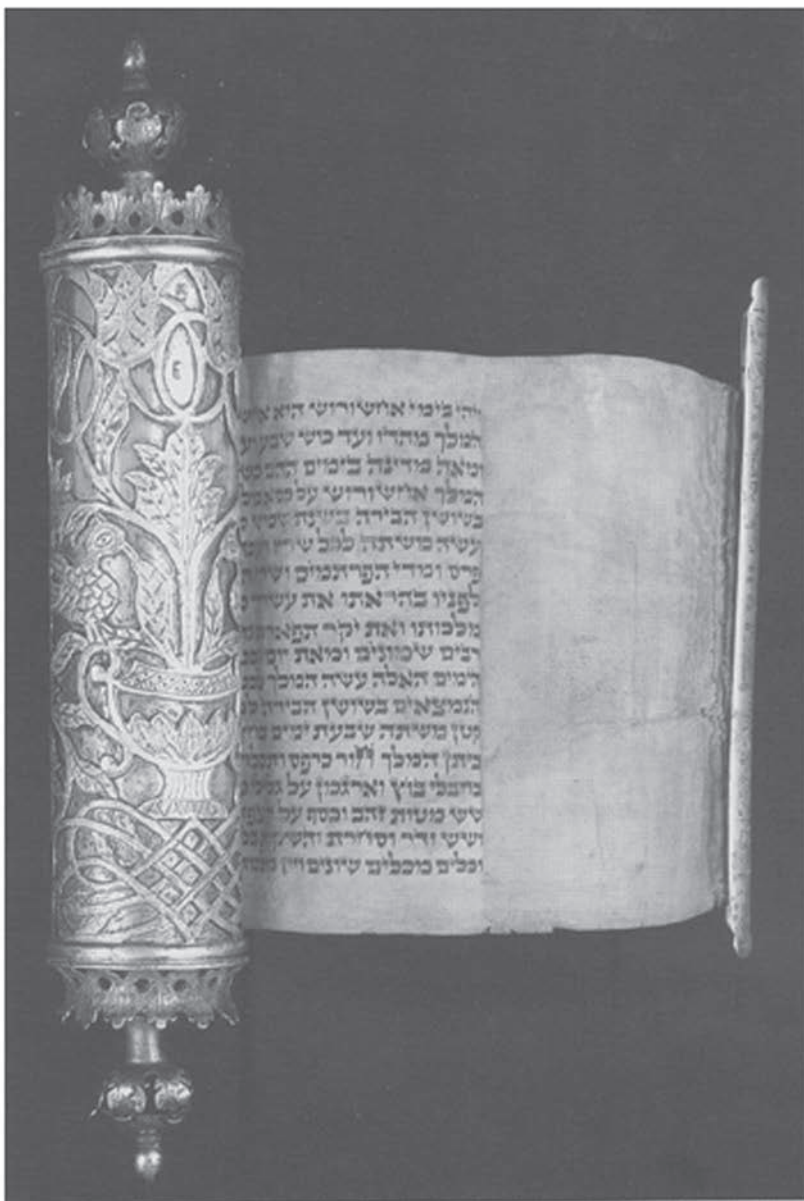 E
ויהי בימי אחשורוש הוא
המלך מהדו ועד כוש שבע
ומאה מדינה בימים ההם
המלך אחשורוש על כסא
בשושן הבירה בשנת
עשה משתה לכל שריו
פרס ומדי הפרתמים ושרי
לפניו בהראתו את עשר
מלכותו ואת יקר
רבים שמונים ומאת יום
הימים האלה עשה המלך
הנמצאים בשושן הבירה
קטן משתה שבעת ימים
ביתן המלך חור כרפס
בחבלי בוץ וארגמן על
שש מטות זהב וכסף על
ושש ודר וסחרת
וכלים מכלים שונים ויין